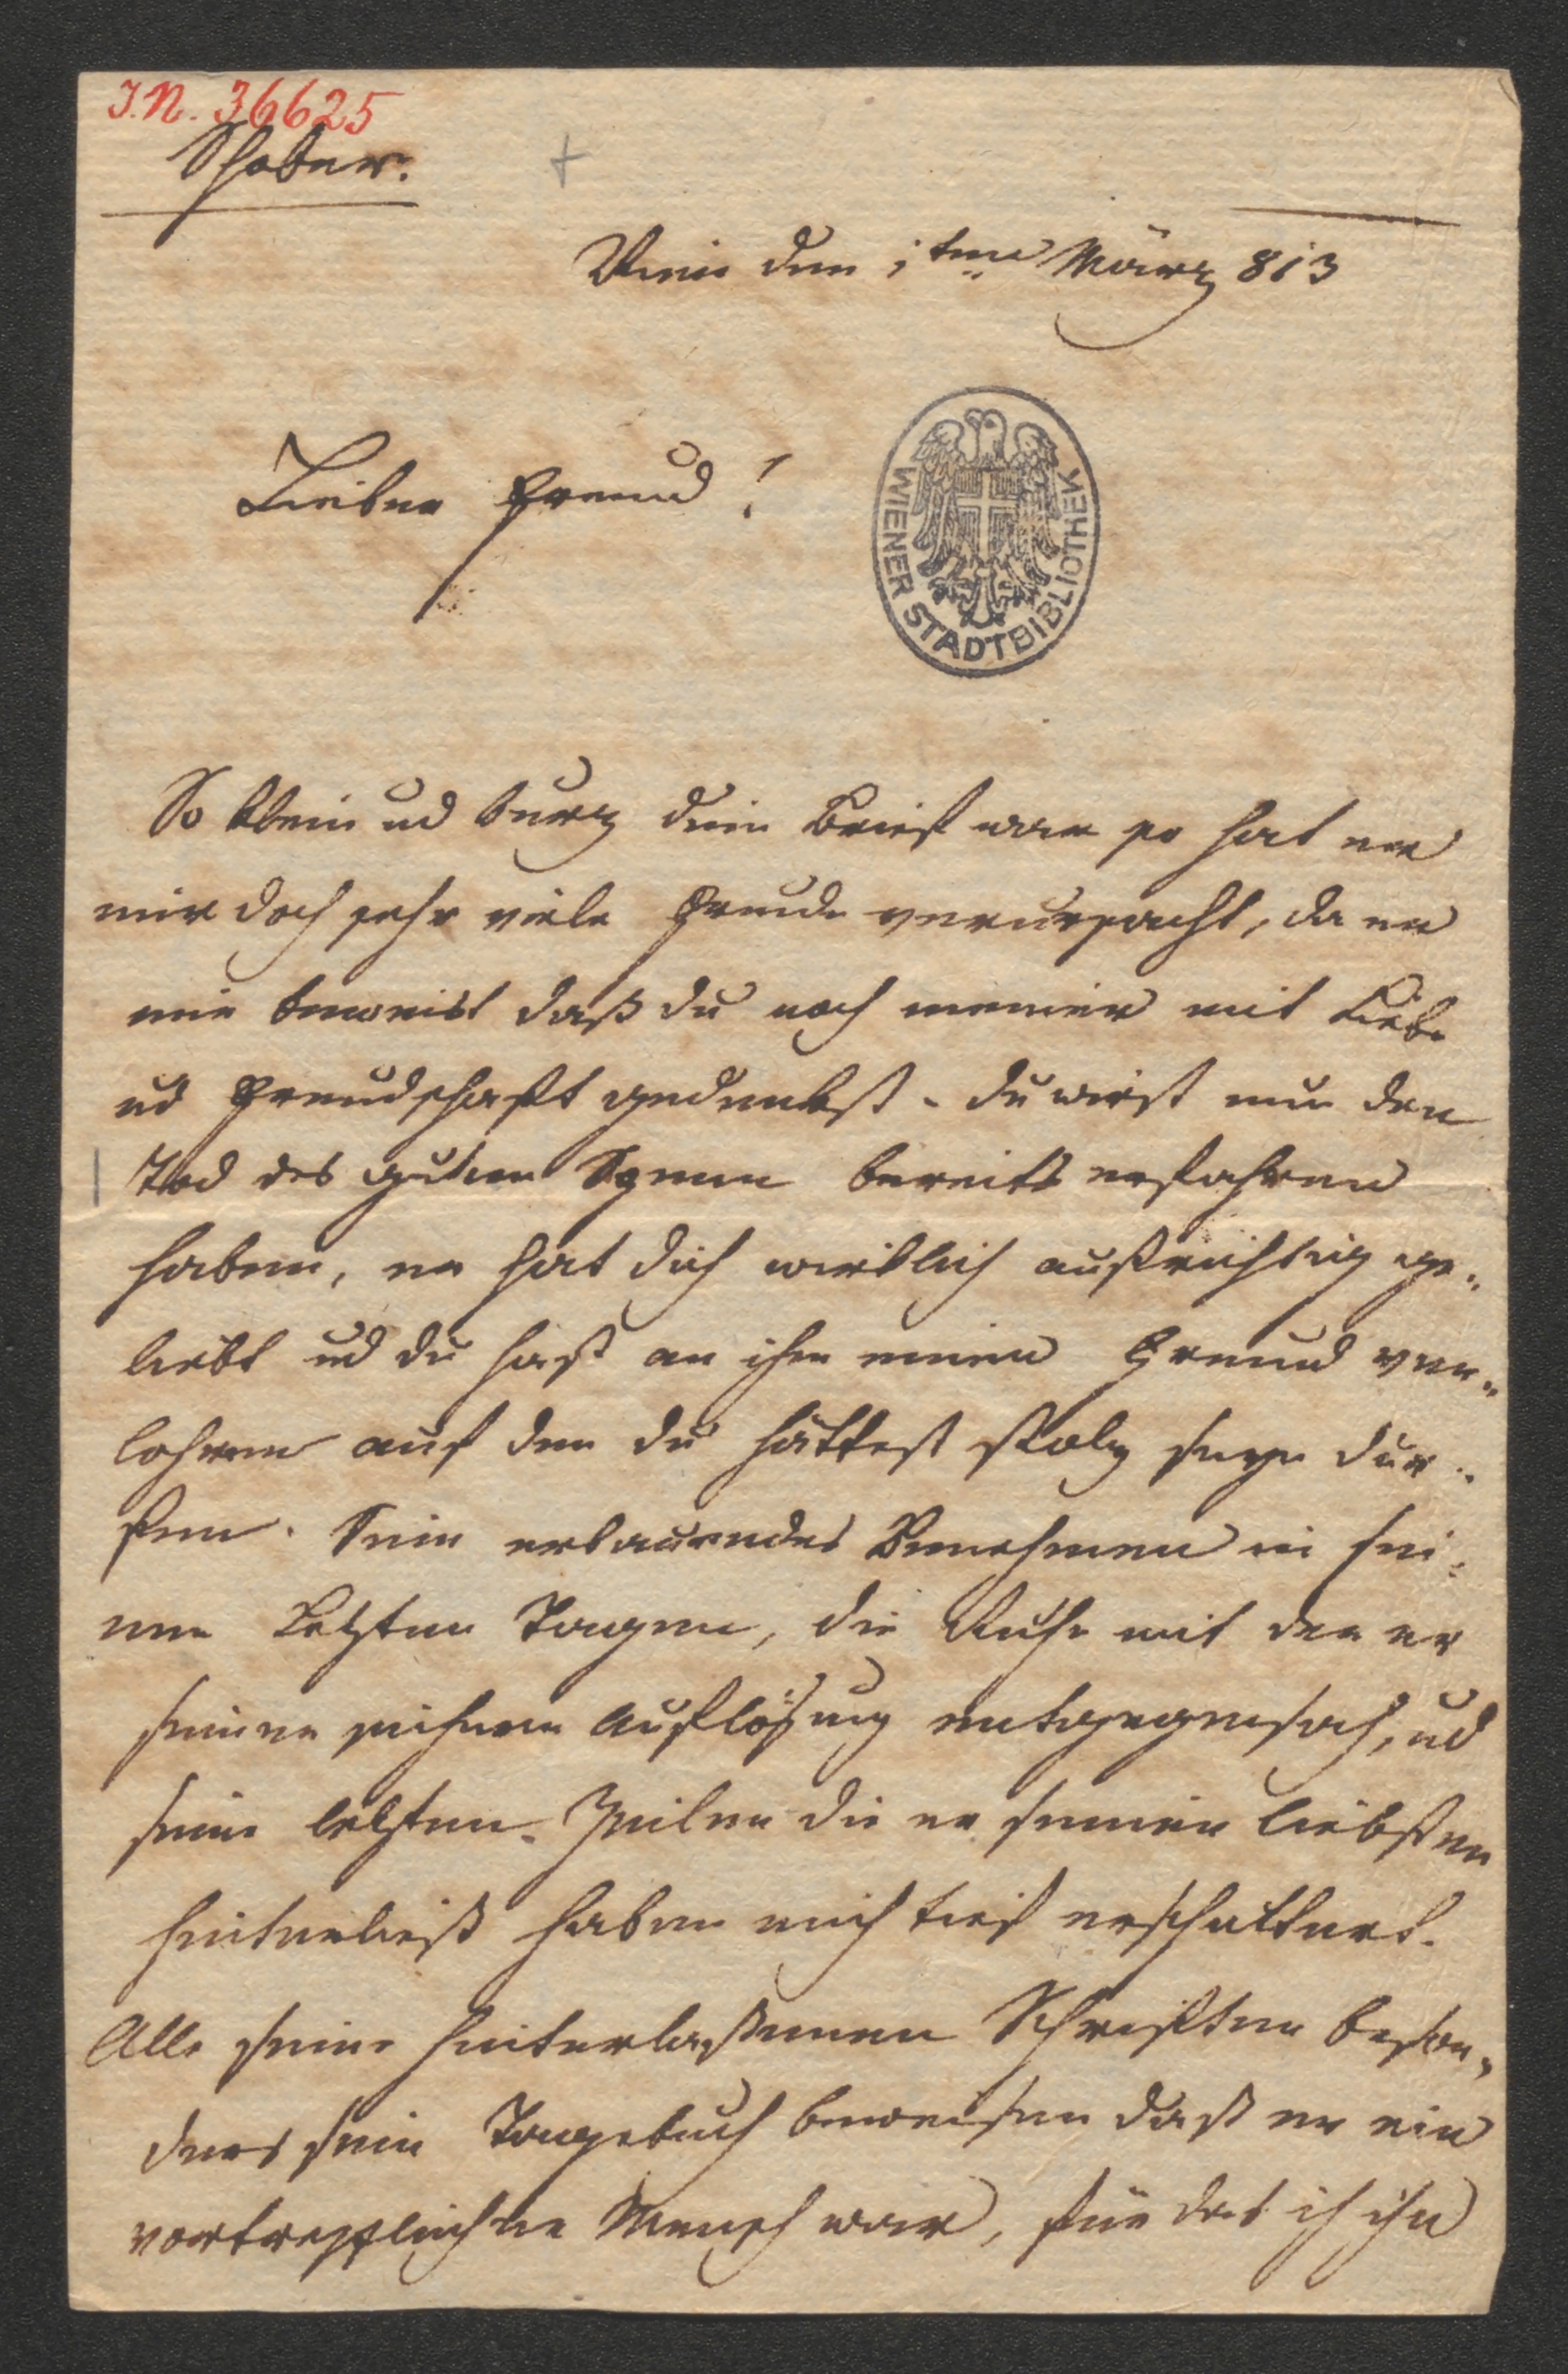 I.N. 36625
Schober.
Wien den 1ten März 813
Lieber Freund!
WIENER STADTBIBLIOTHEK
So klein ud kurz dein Brief war so hat er
mir doch sehr viele Freude verursacht, da er
mir beweist daß du noch meiner mit Liebe
ud Freudschaft gedenkst. du wirst nun den
Tod des guten bereits erfahren
haben, er hat dich wirklich aufrichtig ge-
liebt ud du hast an ihm einen Freund ver-
lohren auf den du hättest stolz seyn dür-
fen. Sein erbauendes Benehmen in sei-
nen Letzten Tagen, die Ruhe mit der er
seiner sichern Auflösung entgegensah, ud
seine letzten Zeilen die er seinen liebsten
hinterließ haben mich tief erschüttert.
Alle seine hinterlaßenen Schriften beson-
ders sein Tagebuch beweisen daß er ein
vortrefflicher Mensch war, für das ich ihn